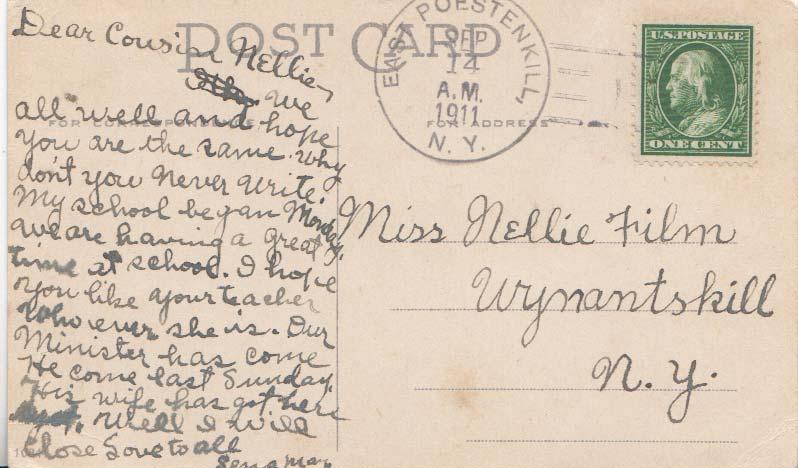 POST CARD
Dear Cousin Nellie,
We
all well and hope
you are the same. Why
don't you never write.
My school began Monday.
we are having a great
time at school. I hope
you like your teacher
who ever she is. Our
Minister has come
He come last Sunday.
His wife has got here
Well I will
close Love to all
Lena May
FOR CORRESPONDENCE
EAST POESTENKILL,
SEP
14
A.M.
1911
N. Y.
FOR ADDRESS
U.S. POSTAGE
ONE CENT
Miss Nellie Film
Wynantskill
N. Y.